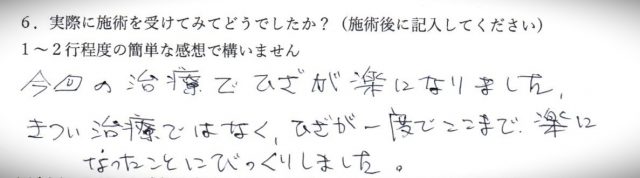 6．実際に施術を受けてみてどうでしたか？（施術後に記入してください）
1～2行程度の簡単な感想で構いません
今回の治療でひざが楽になりました、
きつい治療ではなく、ひざが一度でここまで楽に
なったことにびっくりしました。